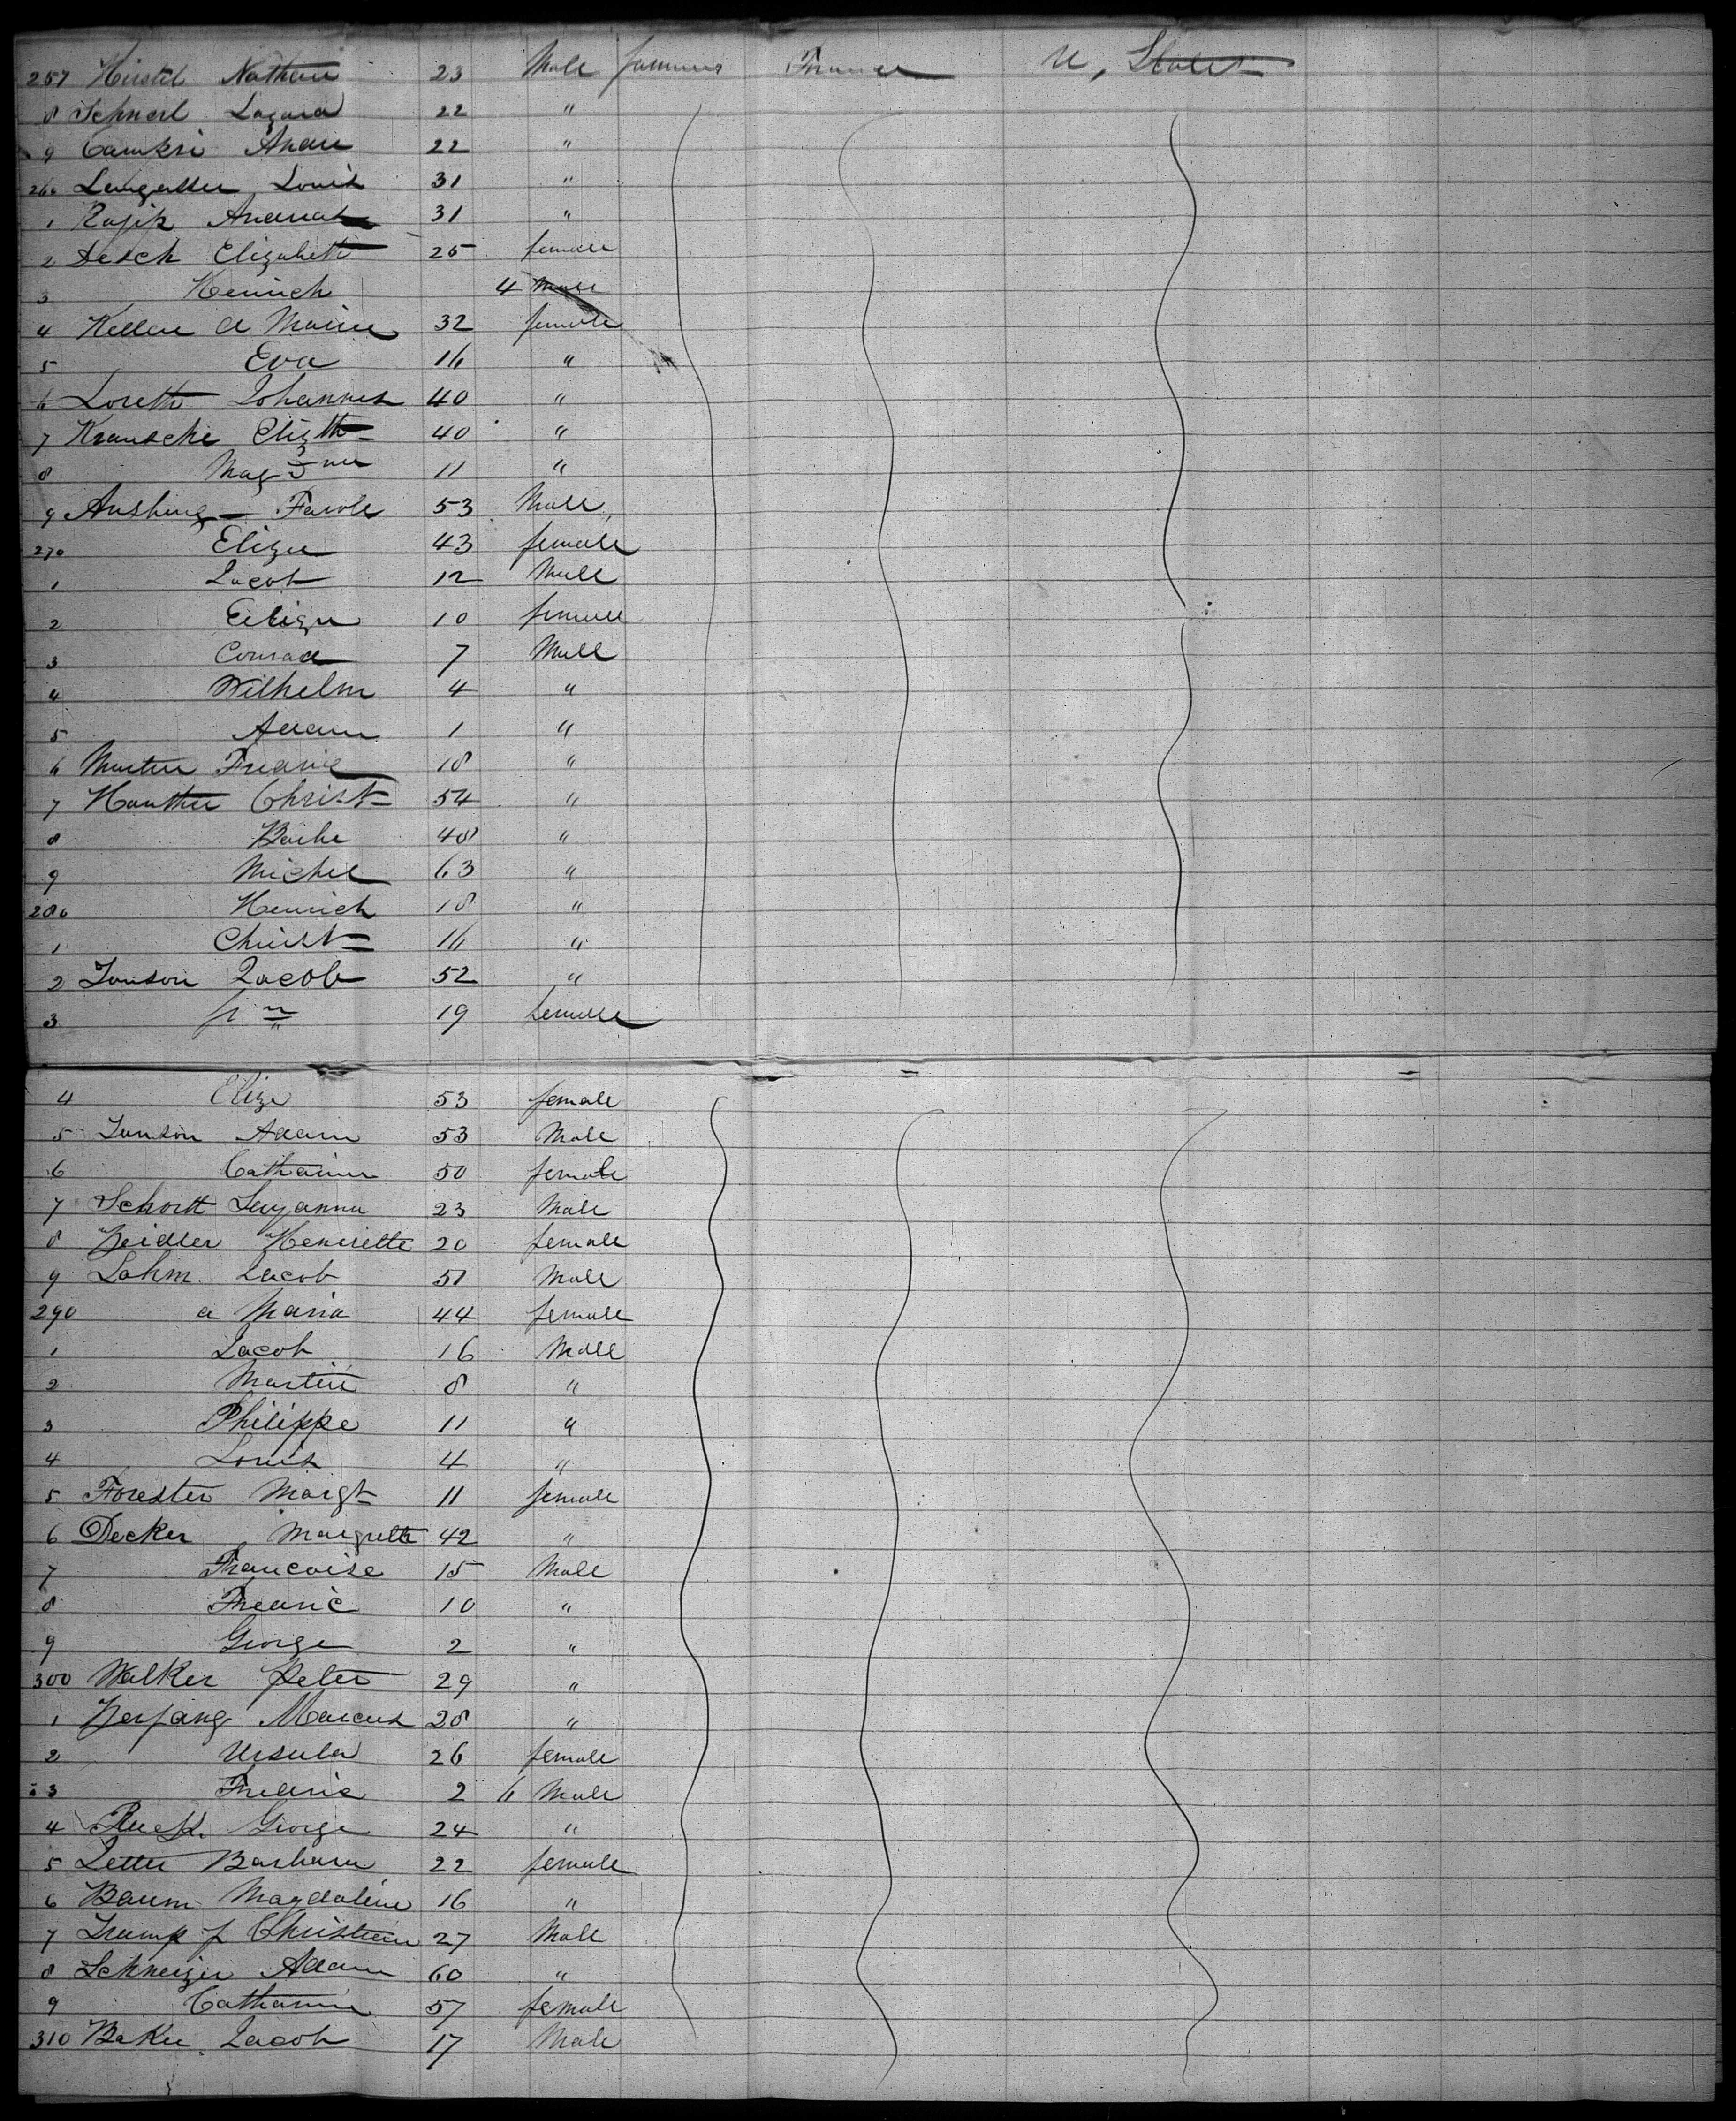 257 Hirstel Nathan 23 Male farmers France U, States
8 Schnerl Lazard 22 "
9 22 "
260 Louis 31 "
1 31 "
2 Desch Elizabeth 25 female
3 Heinrich 4 Male
4 Keller A Marie 32 female
5 Eva 16 "
6 Loreth Johannes 40 "
7 Krausche Elizth 40 "
8 Mag 11 "
9 53 Male
270 Eliza 43 female
1 Jacob 12 Male
2 Eliza 10 female
3 Conrad 7 Male
4 Wilhelm 4 "
5 Adam 1 "
6 Martin Fredric 18 "
7 Christ 54 "
8 48 "
9 Michel 63 "
280 Heinrich 18 "
1 Christ 16 "
2 Jonson Jacob 52 "
3 19 female
4 Eliza 53 female
5 Jonson Adam 53 Male
6 Catharine 50 female
7 Schortt Suzanna 23 Male
8 Zeidler Henriette 20 female
9 Lahm Jacob 51 Male
290 a Maria 44 female
1 Jacob 16 Male
2 Martin 8 "
3 Philippe 11 "
4 Louis 4 "
5 Forester Margt 11 female
6 Decker Margreth 42 "
7 Francoise 15 Male
8 Fredric 10 "
9 George 2 "
300 Walker Peter 29 "
1 Zerfang Marcus 28 "
2 Ursula 26 female
3 Fredric 2 6 Male
4 George 24 "
5 Letter Barbara 22 female
6 Baum Magdaline 16 "
7 Trump f Christian 27 Male
8 Schneizer Adam 60 "
9 Catharine 57 female
310 Baker Jacob 17 Male